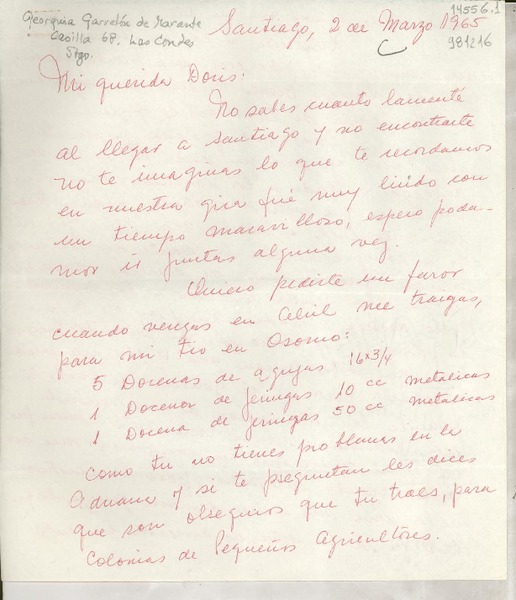 Georgina Garretón de Marante
Casilla 68. Las Condes
Stgo.
14556.1
981216
C
Santiago, 2 de Marzo 1965
Mi querida Doris:
No sabes cuanto lamenté
al llegar a Santiago y no encontrarte
no te imaginas lo que te recordamos
en nuestra gira fué muy lindo con
un tiempo maravilloso, espero poda-
mos ir juntas alguna vez.
Quiero pedirte un favor
cuando vengas en Abril me traigas,
para mi tio en Osorno:
5 Docenas de agujas 16x3/4
1 Docena de jeringas 10 cc metalicas
1 Docena de jeringas 50 cc metalicas
como tu no tienes problemas en la
Aduana y si te preguntan les dices
que son obsequios que tu traes, para
Colonias de Pequeños Agricultores.